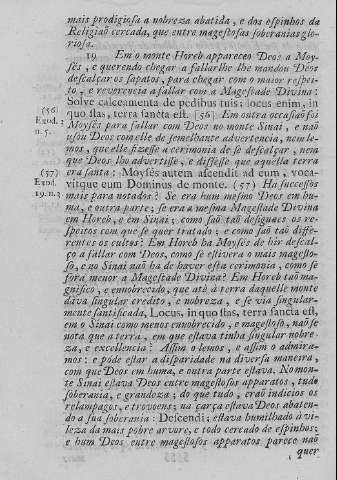 mais prodigiosa a nobreza abatida, e dos espinhos da
Religiaõ cercada, que entre magestosas soberanias glo-
riosa.
19 Em o monte Horeb appareceo Deos a Moy-
sés, e querendo chegar a fallarlhe lhe mandou Deos
descalçar os sapatos, para chegar com o maior respei-
to, e reverencia a fallar com a Magestade Divina:
Solve calceamenta de pedibus tuis: locus enim, in
quo stas, terra sancta est. (56) Em outra occasiaõ foi
(56)
Exod. 3
n. 5.
Moysés para fallar com Deos no monte Sinai, e naõ
usou Deos com elle de semelhante advertencia, nem le-
mos, que elle fizesse a ceremonia de se descalçar, nem
que Deos lho advertisse, e dissesse que aquella terra
era santa: Moyses autem ascendit ad eum, voca-
(57)
Exod.
19. n. 3
vitque eum Dominus de monte. (57) Ha successos
mais para notados? Se era hum mesmo Deos em hu-
ma, e outra parte; se era a mesma Magestade Divina
em Horeb, e em Sinai; como saõ taõ desiguaes os re-
speitos com que se quer tratado; e como saõ taõ diffe-
rentes os cultos? Em Horeb ha Moysés de hir descal-
ço a fallar com Deos, como se estivera o mais magesto-
so, e no Sinai naõ ha de haver esta ceremonia, como se
fora menor a Magestade Divina? Em Horeb taõ ma-
gnifico, e ennobrecido, que até à terra daquelle monte
dava singular credito, e nobreza, e se via singular-
mente santificada, Locus, in quo stas, terra sancta est,
em o Sinai como menos ennobrecido, e magestoso, naõ se
nota que a terra, em que estava tinha singular nobre-
za, e excellencia? Assim o lemos, e assim o admire-
mos: e póde estar a disparidade na diversa maneira,
com que Deos em huma, e outra parte estava. No mon-
te Sinai estava Deos entre magestosos apparatos, tudo
soberania, e grandeza; do que tudo, eraõ indicios os
relampagos, e trovoens; na çarça estava Deos abaten-
do a sua soberania: Descendi; estava humilhado à vi-
leza da mais pobre arvore, e todo cercado de espinhos;
e hum Deos entre magestosos apparatos parece naõ
quer